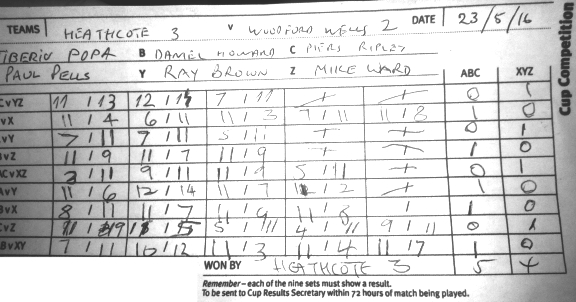 TEAMS HEATHCOTE 3 V WOODFORD WELLS 2 DATE 23/5/16
TIBERIU POPA B DANIEL HOWARD C PIERS RIPLEY
PAUL PELLS Y RAY BROWN Z MIKE WARD ABC XYZ
CvYZ 11 / 13 12 / 7 / 11 + + 0 1
vX 11 / 4 6 / 11 11 / 3 / 11 11 / 8 1 0
vY 7 / 11 7 / 11 5 / 11 + + 0 1
vZ 11 / 9 11 / 7 11 / 9 + + 1 0
CvXZ 3 / 11 9 / 11 11 / 9 5 / 11 + 0 1
AvY 11 / 6 12 / 14 11 / 7 / 2 + 1 0
BvX 8 / 11 11 / 7 11 / 9 11 / 8 / 1 0
CvZ 11 / 9 / 5 / 11 4 / 11 9 / 11 0 1
BvXY 7 / 11 10 / 12 11 / 3 11 / 4 11 / 7 1 0
WON BY HEATHCOTE 3 5 4
Remember – each of the nine sets must show a result.
To be sent to Cup Results Secretary within 72 hours of match being played.
Cup Competition